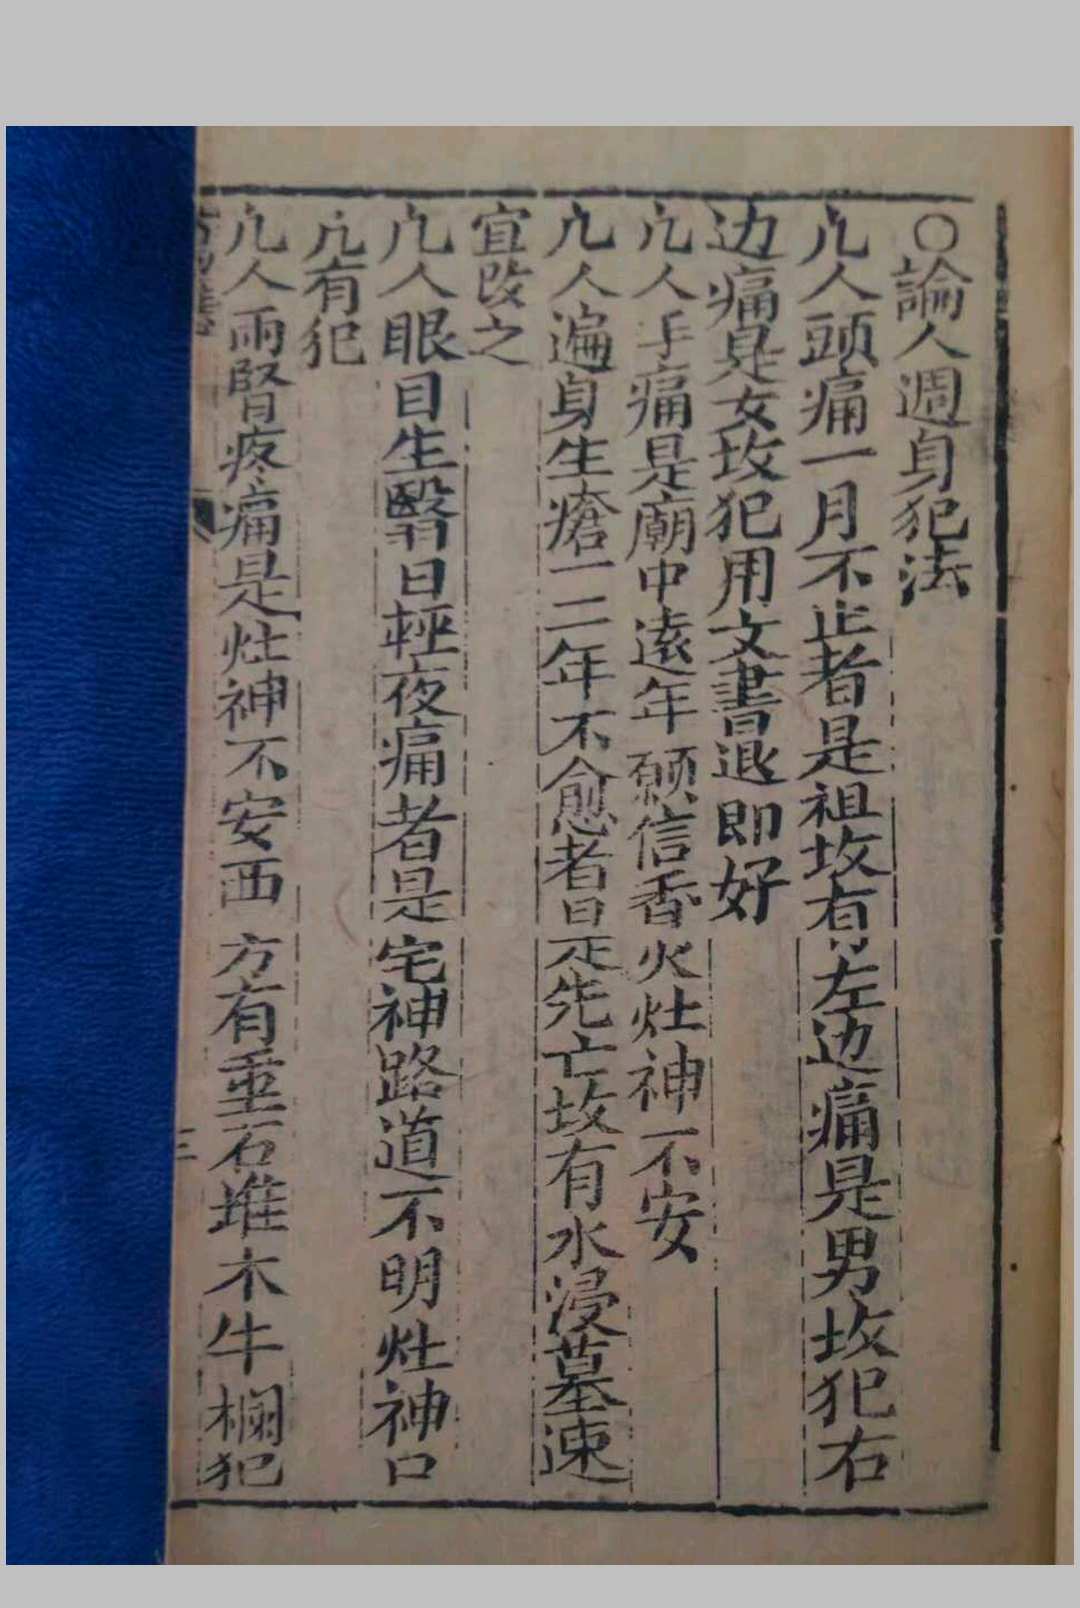 〇論人週身犯法
凢人頭痛一月不止者是祖坟有左边痛是男坟犯右
边痛是女坟犯用文書退即好
凢人手痛是廟中遠年願信香火灶神不安
凢人遍身生瘡一二年不愈者是先亡坟有水浸墓速
宜改之
凢人眼目生翳日輕夜痛者是宅神路道不明灶神口
凢有犯
凢人兩腎疼痛是灶神不安西方有重石堆木牛欄犯
三